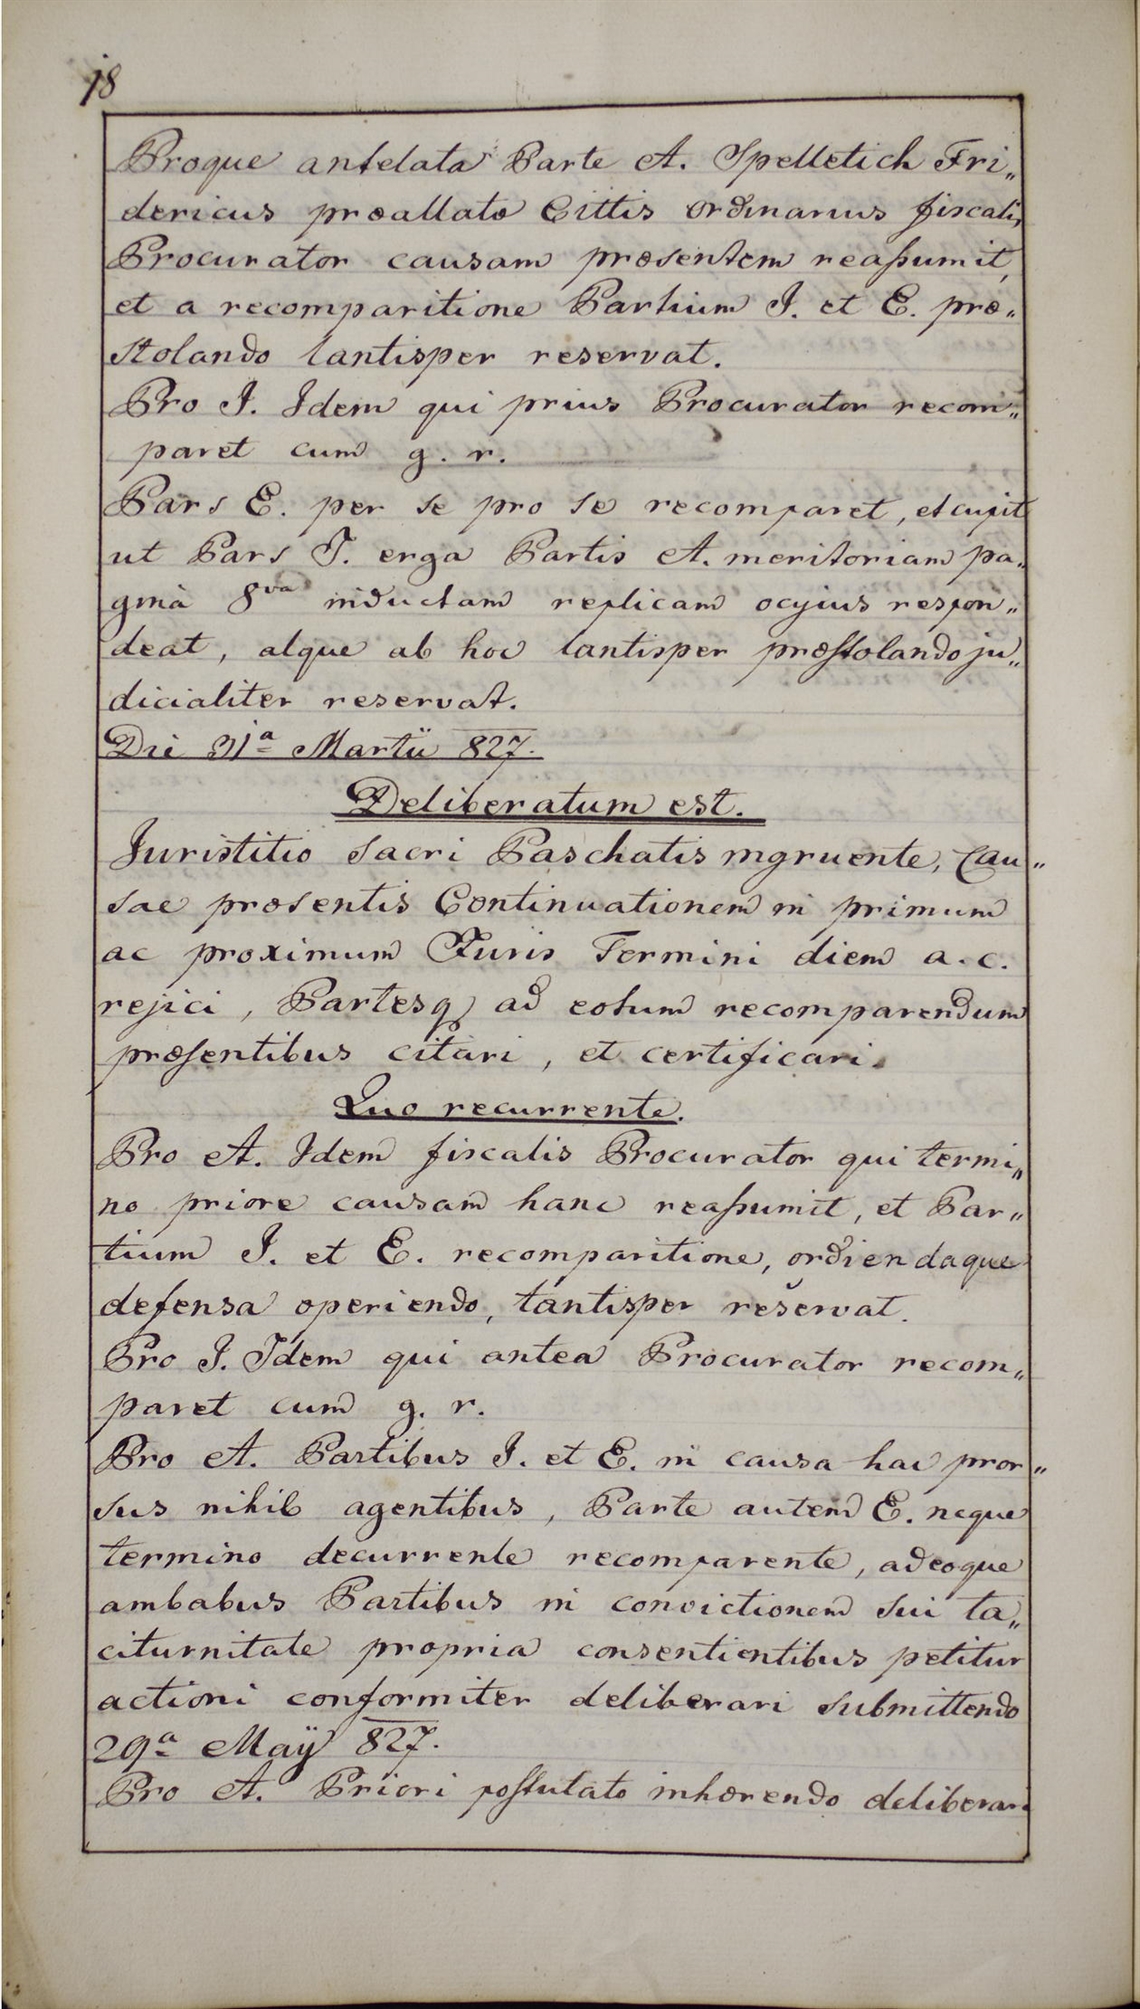 18
Proque antelata Parte A. Spelletich Fri„
dericus præallata Cittis ordinarius fiscalis
Procurator causam præsentem reaſsumit,
et a recomparitione Partium I. et E. præ„
stolando tantisper reservat.
Pro I. Idem qui prius Procurator recom„
paret cum g. r.
Pars E. per se pro se recomparet, et cupit
ut Pars I. erga Partis A. meritoriam pa„
gina 8va inductam replicam ocyius respon„
deat, atque ab hoc tantisper præstolando ju„
dicialiter reservat.
Die 31a Martii 827.
Deliberatum est.
Juristitio Sacri Paschatis ingruente, Cau„
sae præsentis Continuationem in primum
ac proximum Juris Termini diem a. c.
rejici, Partesq ad eotum recomparendum
præsentibus citari, et certificari.
Quo recurrente.
Pro A. Idem fiscalis Procurator qui termi„
no priore causam hanc reaſsumit, et Par„
tium I. et E. recomparitione, ordiendaque
defensa operiendo, tantisper reservat.
Pro I. Idem qui antea Procurator recom„
paret cum g. r.
Pro A. Partibus I. et E. in causa hac pror„
sus nihil agentibus, Parte autem E. neque
termino decurrente recomparente, adeoque
ambabus Partibus in convictionem sui ta„
citurnitate propria consentientibus petitur
actioni conformiter deliberari submittendo
29a Maÿ 827.
Pro A. Priori postulato inhærendo deliberari